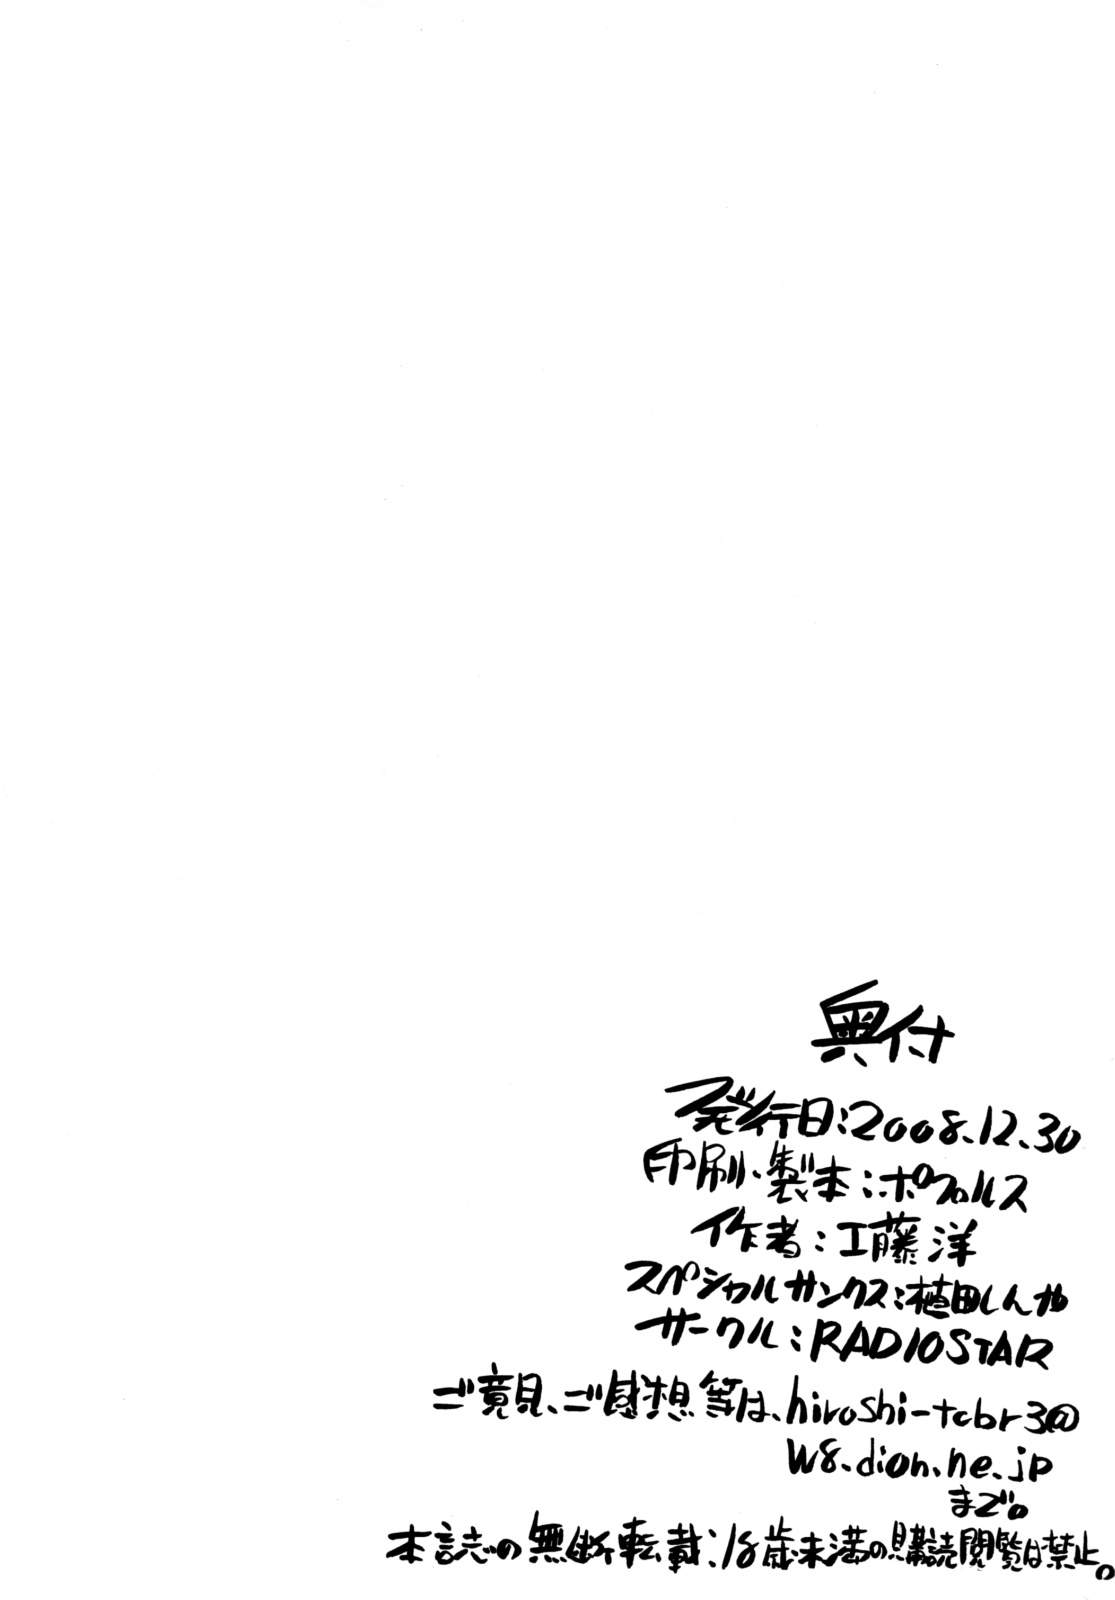 奥付
発行日:2008.12.30
印刷、製本:ポプルス
作者:工藤洋
スペシャルサンクス:植田しんや
サークル:RADIOSTAR
ご意見、ご感想等は、hiroshi-tcbr3@
w8.dion.ne.jp
まで。
本誌の無断転載、18歳未満の購読閲覧は禁止。